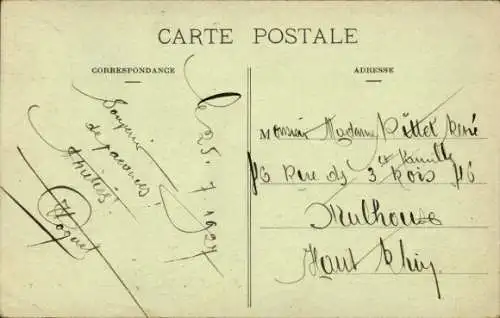 CARTE POSTALE
CORRESPONDANCE
ADRESSE
Le 25. 7. 1927
Souvenir
de vacances.
Amitiés!
Monsieur Madame Pittet René
et famille
46 Rue des 3 Rois 46
Mulhouse
Haut Rhin